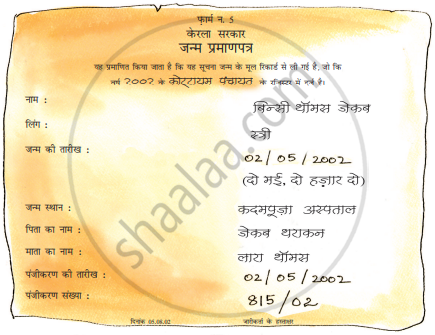 फार्म न. 5
केरला सरकार
जन्म प्रमाणपत्र
यह प्रमाणित किया जाता है कि यह सूचना जन्म के मूल रिकार्ड से ली गई है, जो कि
वर्ष 2002 के कोट्टायम पंचायत के रजिस्टर में दर्ज है।
नाम : बिन्सी थॉमस जेकब
लिंग : स्त्री
जन्म की तारीख : 02/05/2002
(दो मई, दो हज़ार दो)
जन्म स्थान : कदमपूज़ा अस्पताल
पिता का नाम : जेकब थराकन
माता का नाम : लारा थॉमस
पंजीकरण की तारीख : 02/05/2002
पंजीकरण संख्या : 815/02
दिनांक 05.08.02 जारीकर्ता के हस्ताक्षर
shaalaa.com